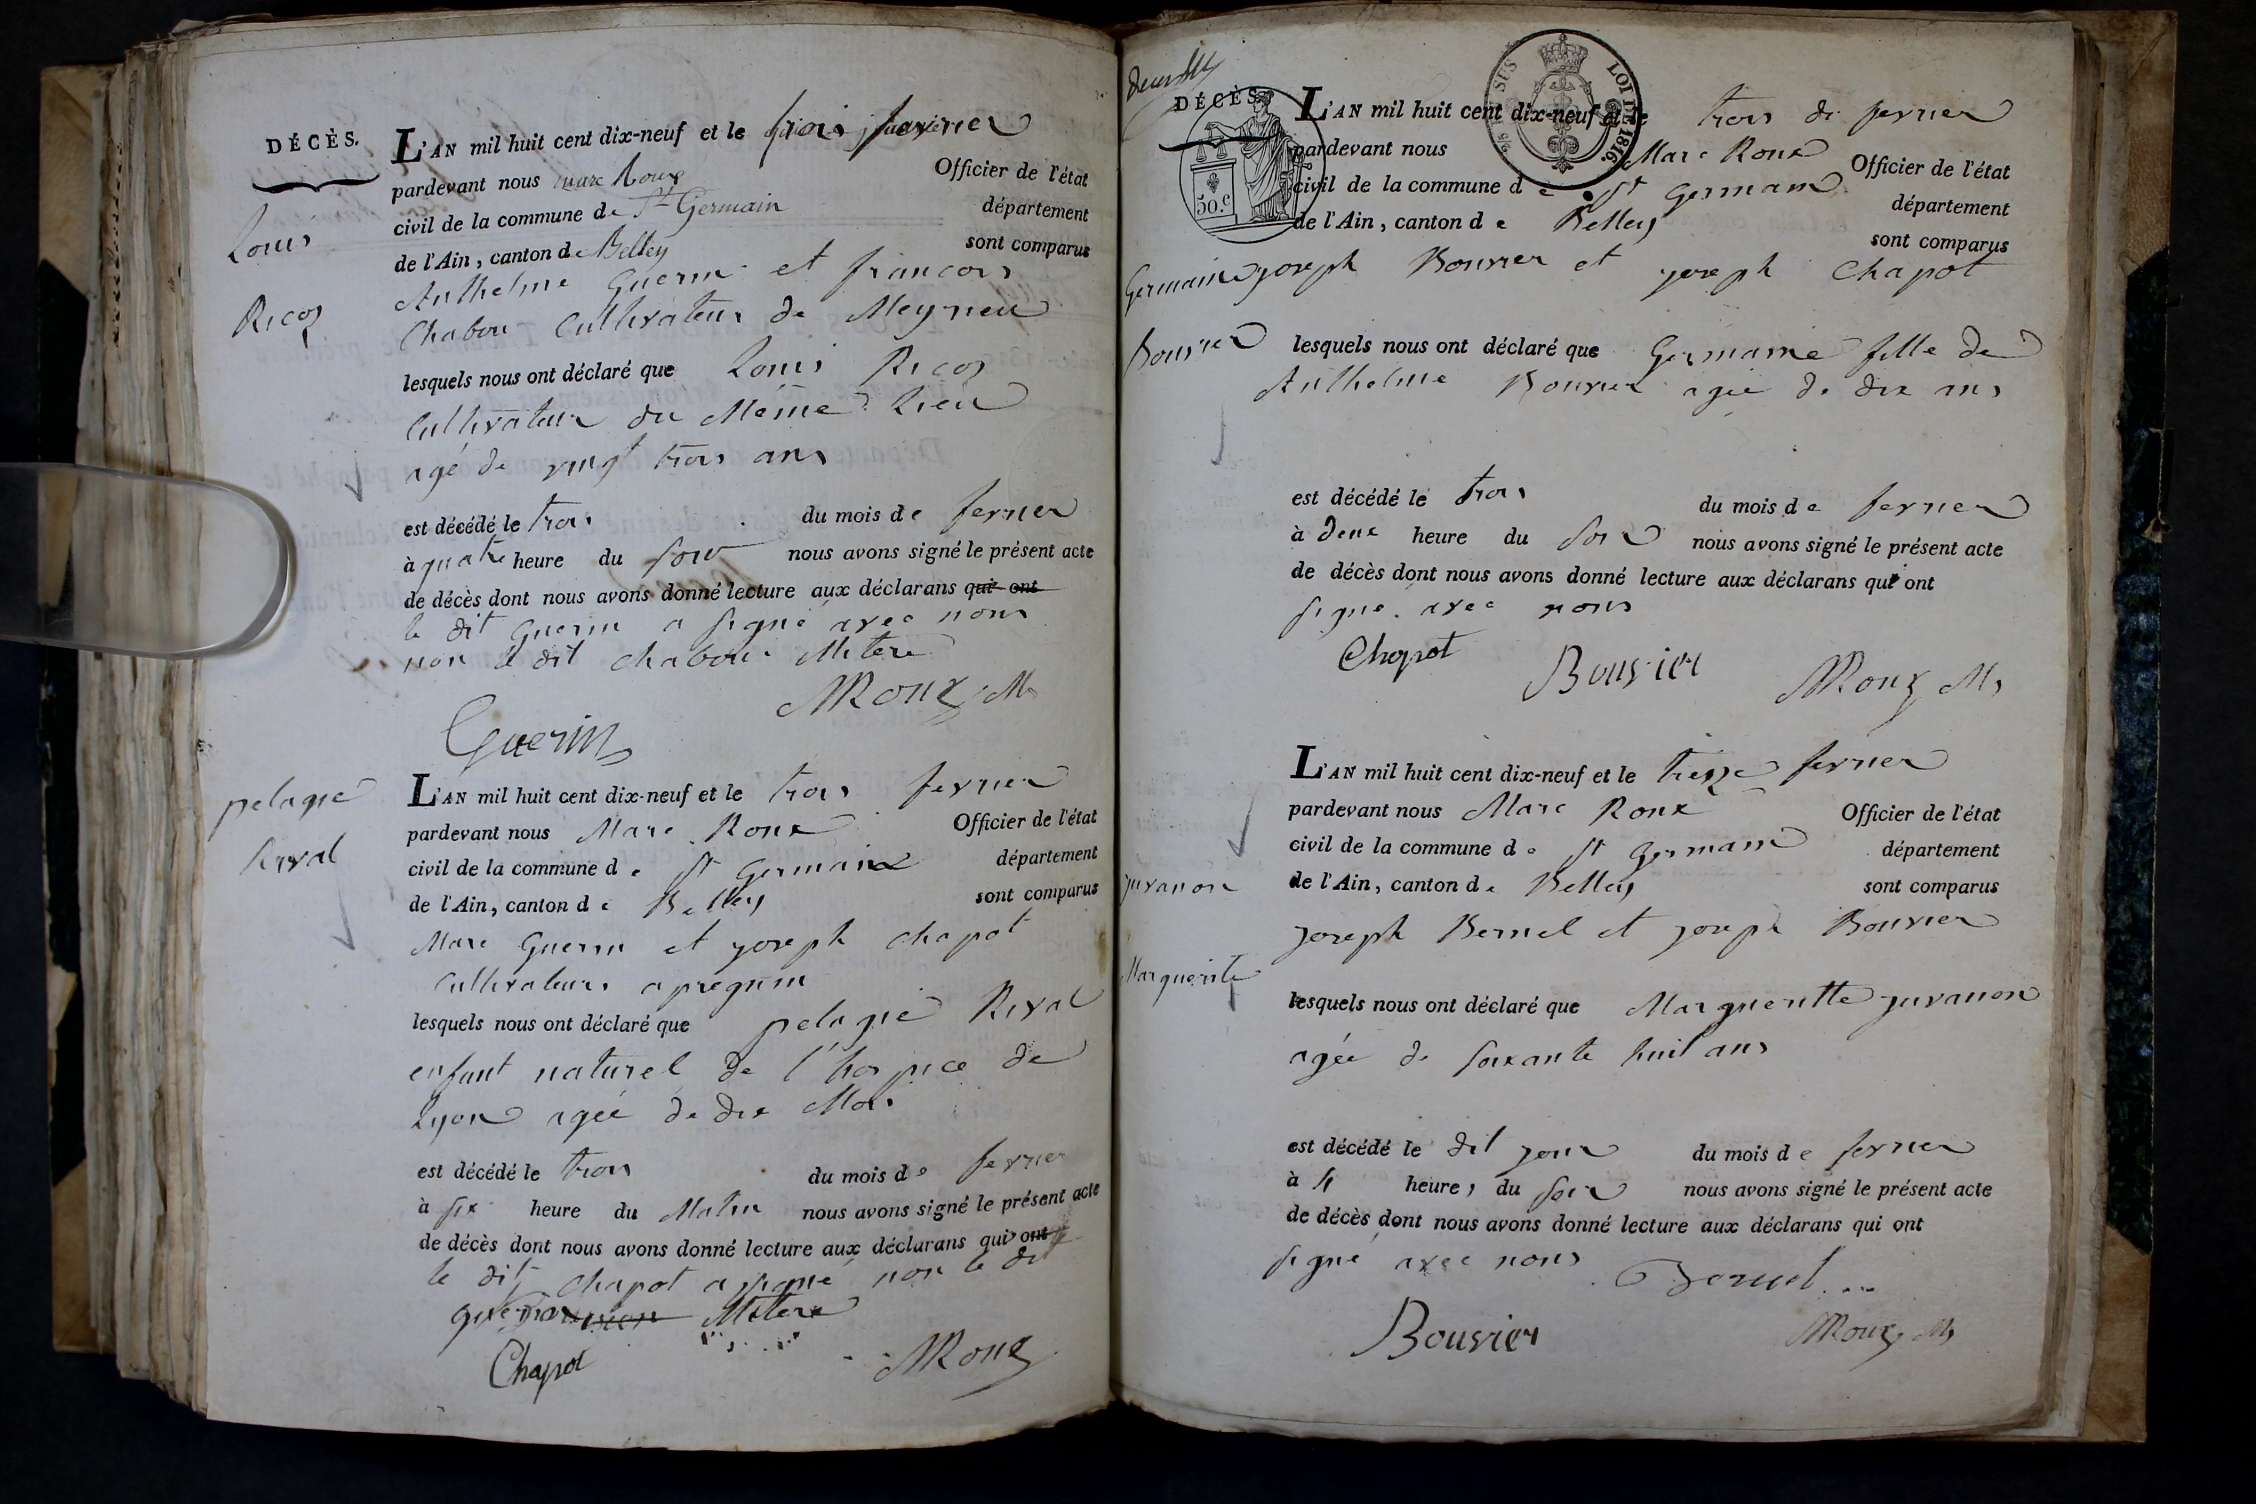 DÉCÈS.
Louis
Ricoz
L'AN mil huit cent dix-neuf et le trois fevrier
pardevant nous marc Roux Officier de l'état
civil de la commune de St Germain département
de l'Ain, canton de Belley sont comparus
Anthelme Guerin et francois
Chabou Cultivateurs de Meyrieu
lesquels nous ont déclaré que Louis Ricoz
Cultivateur du Même Lieu
agé de vingt trois ans
est décédé le trois du mois de fevrier
à quatre heure du soir nous avons signé le présent acte
de décès dont nous avons donné lecture aux déclarans qui ont
le dit Guerin a signé avec nous
non le dit chabou
MRoux M
Guerin
pelagie
Rival
L'AN mil huit cent dix-neuf et le trois fevrier
pardevant nous Marc Roux Officier de l'état
civil de la commune de St Germain département
de l'Ain, canton de Belley sont comparus
Marc Guerin et joseph chapot
Cultivateurs a pregnin
lesquels nous ont déclaré que pelagie Rival
enfant naturel de l'hospice de
Lyon agée de dix Mois
est décédé le trois du mois de fevrier
à six heure du Matin nous avons signé le présent acte
de décès dont nous avons donné lecture aux déclarans qui ont
le dit chapot a signé non le dit
guerin
Chapot MRoux
DÉCÈS.
50.c
LOI DE 1816.
Germaine
Bouvier
L'AN mil huit cent dix-neuf et le trois de fevrier
pardevant nous Marc Roux Officier de l'état
civil de la commune de St Germain département
de l'Ain, canton de Belley sont comparus
joseph Bouvier et joseph Chapot
lesquels nous ont déclaré que Germaine fille de
Anthelme Bouvier agée de dix ans
est décédé le trois du mois de fevrier
à deux heure du soir nous avons signé le présent acte
de décès dont nous avons donné lecture aux déclarans qui ont
signé avec nous
Chapot Bouvier MRoux M
juvanon
Marguerite
L'AN mil huit cent dix-neuf et le treize fevrier
pardevant nous Marc Roux Officier de l'état
civil de la commune de St Germain département
de l'Ain, canton de Belley sont comparus
joseph Bernel et joseph Bouvier
lesquels nous ont déclaré que Margueritte juvanon
agée de soixante huit ans
est décédé le dit jour du mois de fevrier
à 4 heures du soir nous avons signé le présent acte
de décès dont nous avons donné lecture aux déclarans qui ont
signé avec nous
Bouvier MRoux M